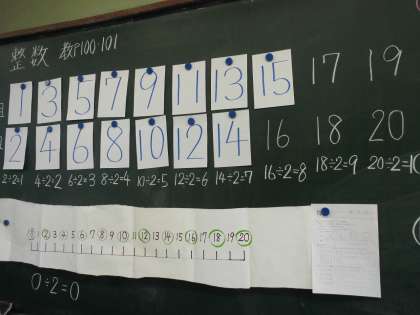 整数 教P100·101
1 3 5 7 9 11 13 15 17 19
2 4 6 8 10 12 14 16 18 20
2÷2=1 4÷2=2 6÷2=3 8÷2=4 10÷2=5 12÷2=6 14÷2=7 16÷2=8 18÷2=9 20÷2=10
0 1 2 3 4 5 6 7 8 9 10 11 12 13 14 15 16 17 18 19 20
0÷2=0